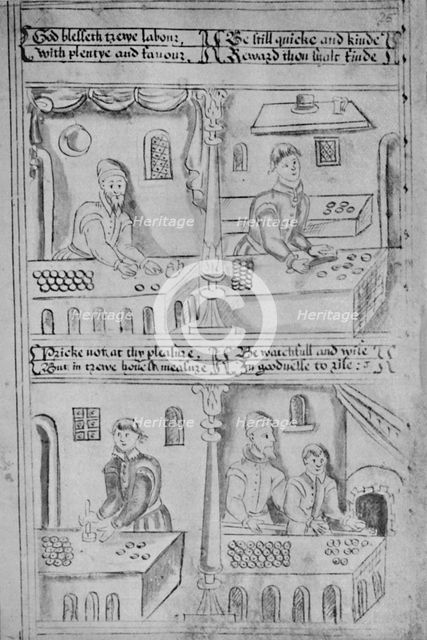 25
God blesseth trewe labour,
with plentye and favour.
Be still quicke and kinde
Reward thou shalt finde
Heritage Heritage
Heritage Heritage
C
Pricke not at thy pleasure.
But in trewe honest measure
Be watchfull and wise
In goodnesse to rise:
Heritage Heritage
Heritage Heritage